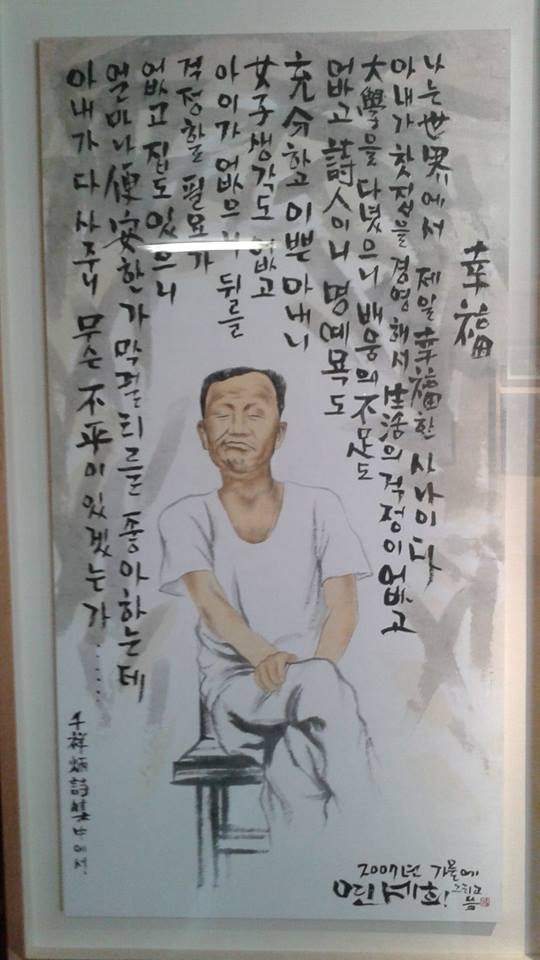 幸福
나는 世界에서 제일 幸福한 사나이다
아내가 찻집을 경영해서 生活의 걱정이 없고
大學을 다녔으니 배움의 不足도
없고 詩人이니 명예욕도
充分하고 이쁜 아내니
女子 생각도 없고
아이가 없으니 뒤를
걱정할 필요가
없고 집도 있으니
얼마나 便安한가 막걸리를 좋아하는데
아내가 다 사주니 무슨 不平이 있겠는가......
千祥炳詩集中에서
2007년 가을에
그리고 씀